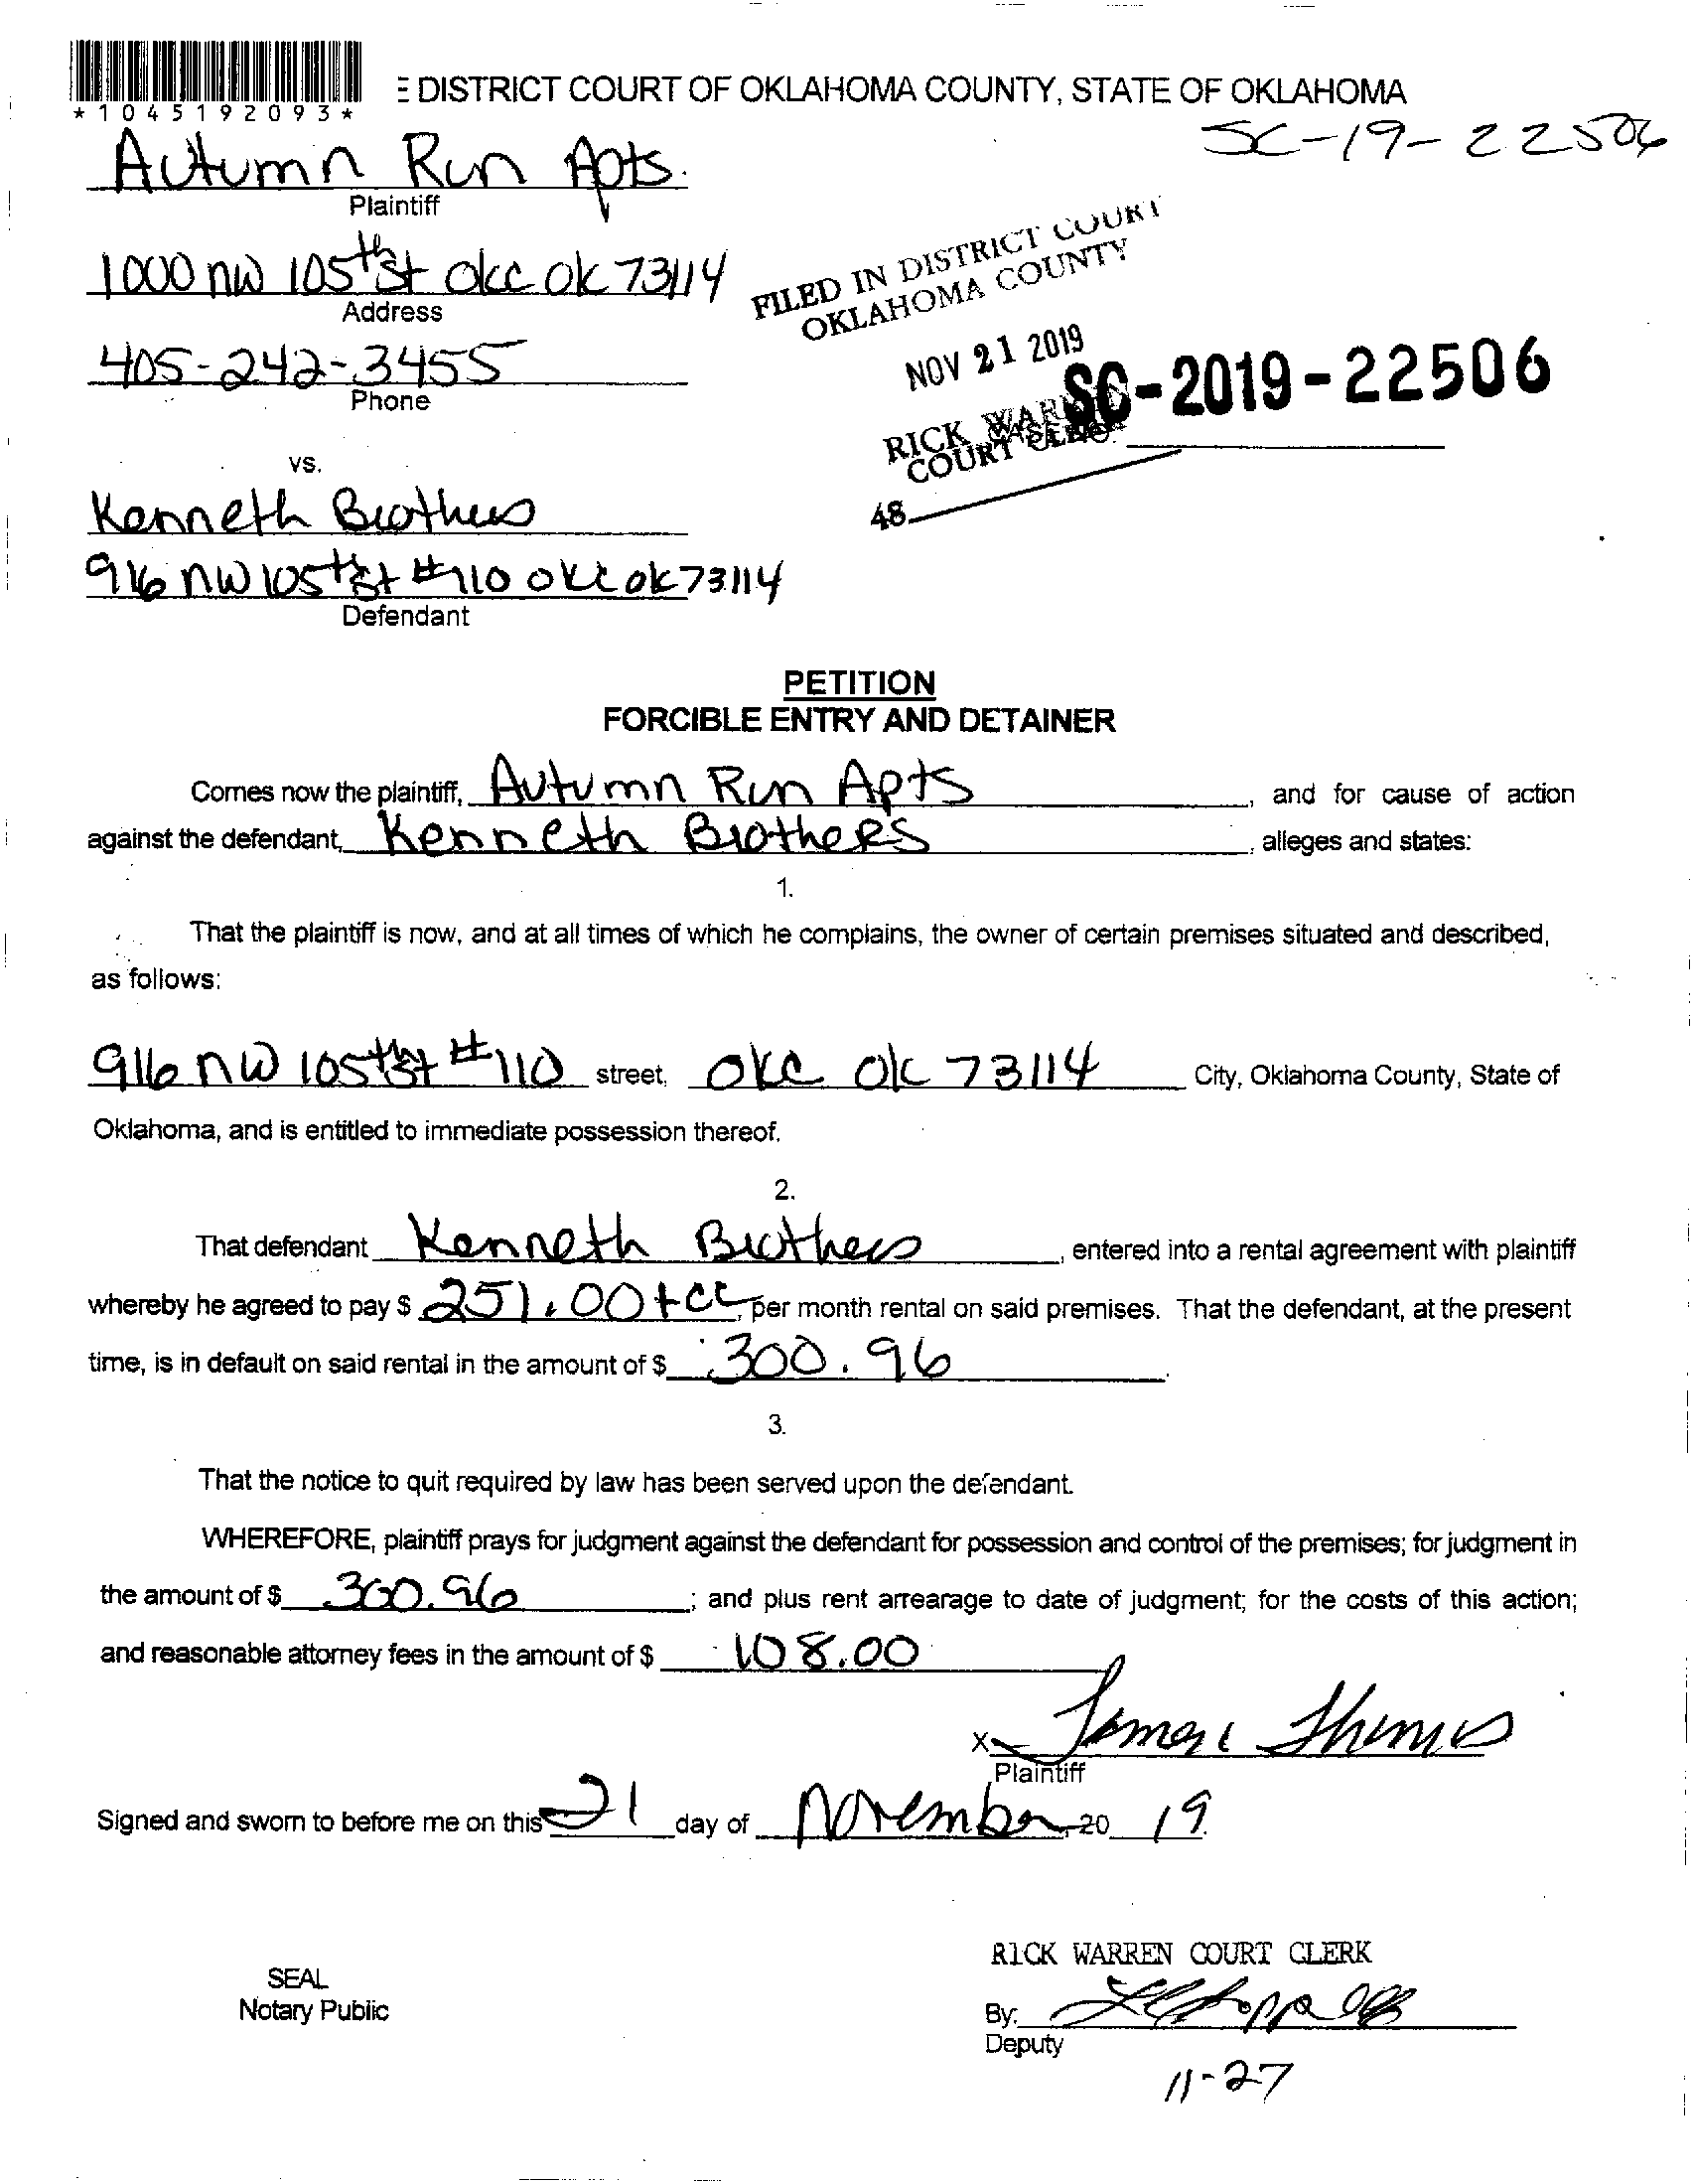 *1045192093*
E DISTRICT COURT OF OKLAHOMA COUNTY, STATE OF OKLAHOMA
SC-19-22506
Autumn Run Apts.
Plaintiff
1000 NW 105th St OKC OK 73114
Address
405-242-3455
Phone
FILED IN DISTRICT COURT
OKLAHOMA COUNTY
NOV 21 2019
SC-2019-22506
RICK WARREN
COURT CLERK
CASE NO.
48
vs.
Kenneth Brothers
916 NW 105th St #110 OKC OK 73114
Defendant
PETITION
FORCIBLE ENTRY AND DETAINER
Comes now the plaintiff, Autumn Run Apts, and for cause of action
against the defendant, Kenneth Brothers, alleges and states:
1.
That the plaintiff is now, and at all times of which he complains, the owner of certain premises situated and described,
as follows:
916 NW 105th St #110 street, OKC OK 73114 City, Oklahoma County, State of
Oklahoma, and is entitled to immediate possession thereof.
2.
That defendant Kenneth Brothers, entered into a rental agreement with plaintiff
whereby he agreed to pay $ 251.00+CC, per month rental on said premises. That the defendant, at the present
time, is in default on said rental in the amount of $ 300.96.
3.
That the notice to quit required by law has been served upon the defendant.
WHEREFORE, plaintiff prays for judgment against the defendant for possession and control of the premises; for judgment in
the amount of $ 300.96; and plus rent arrearage to date of judgment; for the costs of this action;
and reasonable attorney fees in the amount of $ 108.00
X
Plaintiff
Signed and sworn to before me on this 21 day of November, 20 19.
RICK WARREN COURT CLERK
SEAL
Notary Public
By:
Deputy
11-27